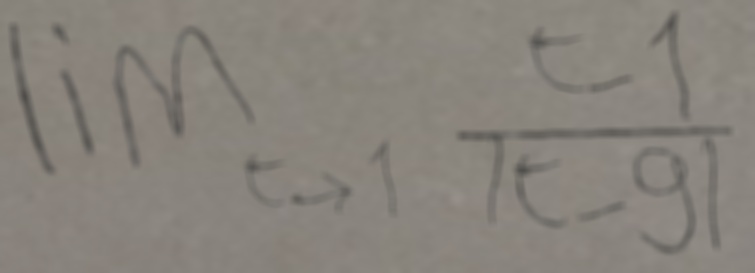 lim t→1 t-1 / |t-9|